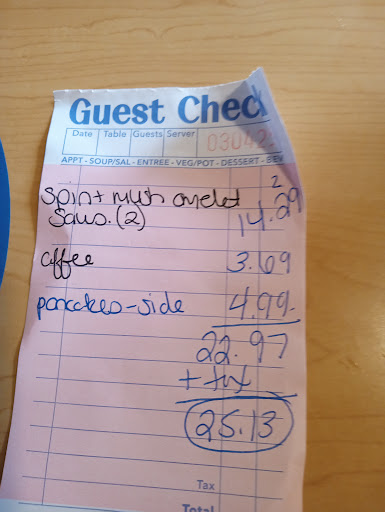 Guest Check
Date Table Guests Server
APPT - SOUP/SAL - ENTREE - VEG/POT - DESSERT - BEV
2
Spin + mush omelet 14.29
Saus. (2)
coffee 3.69
pancakes-side 4.99
22.97
+ tax
25.13
Tax
Total